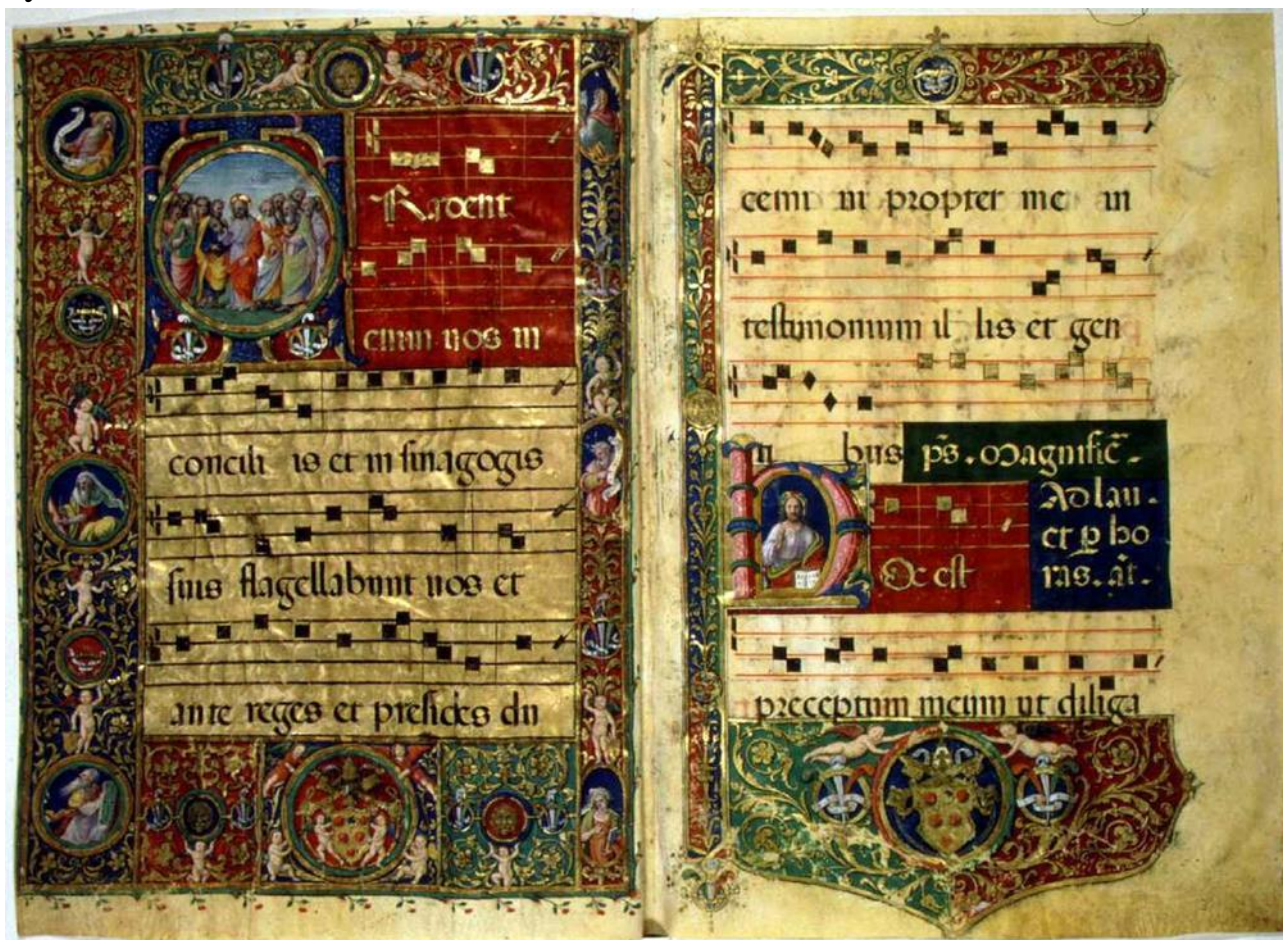 TRadent
enim uos in
concili is et in sinagogis
suis flagellabunt uos et
ante reges et presides du
cemini propter me in
testimonium il lis et gen
ti bus ps̄. Magnific̄.
HOc est
Ad lau-
et ꝑ ho
ras. añ.
preceptum meum ut diliga